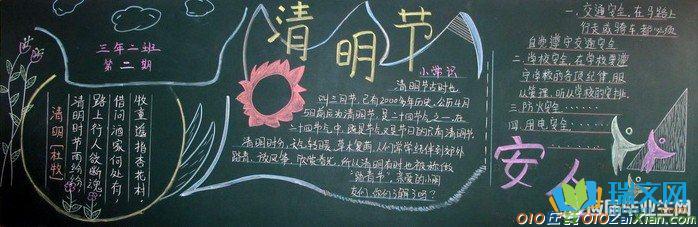 三年二班
第二期
清明[杜牧]
清明时节雨纷纷,
路上行人欲断魂。
借问酒家何处有,
牧童遥指杏花村。
清明节
小常识
清明节古时也
叫三月节,已有2000多年历史。公历4月
5日前后为清明节,是二十四节气之一。在
二十四节气中,既是节气又是节日的只有清明节。
清明时分,天气转暖,草木复萌,人们常常结伴到郊外
踏青、放风筝、欣赏春光,所以清明有时也被称做
“踏青节”。亲爱的小朋
友们,你们了解了吗?
一、交通安全,在马路上
行走或骑车都必须
自觉遵守交通安全
二、学校安全,在校要遵
守学校的各项纪律,服
从管理,听从学校的安排。
三、防火安全……
四、用电安全……
安
瑞文网
届毕业生网
010ZaiXian.com